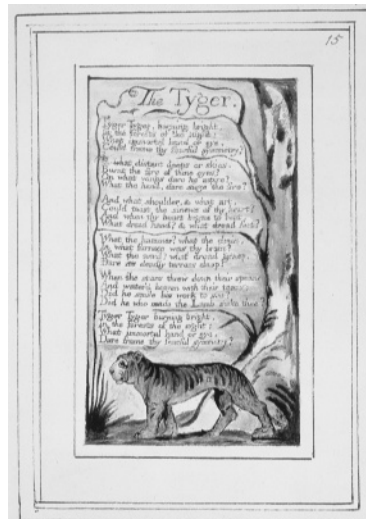 15
The Tyger.
Tyger Tyger, burning bright,
In the forests of the night:
What immortal hand or eye,
Could frame thy fearful symmetry?
In what distant deeps or skies.
Burnt the fire of thine eyes?
On what wings dare he aspire?
What the hand, dare sieze the fire?
And what shoulder, & what art,
Could twist the sinews of thy heart?
And when thy heart began to beat,
What dread hand? & what dread feet?
What the hammer? what the chain,
In what furnace was thy brain?
What the anvil? what dread grasp,
Dare its deadly terrors clasp!
When the stars threw down their spears
And water'd heaven with their tears:
Did he smile his work to see?
Did he who made the Lamb make thee?
Tyger Tyger burning bright,
In the forests of the night:
What immortal hand or eye,
Dare frame thy fearful symmetry?